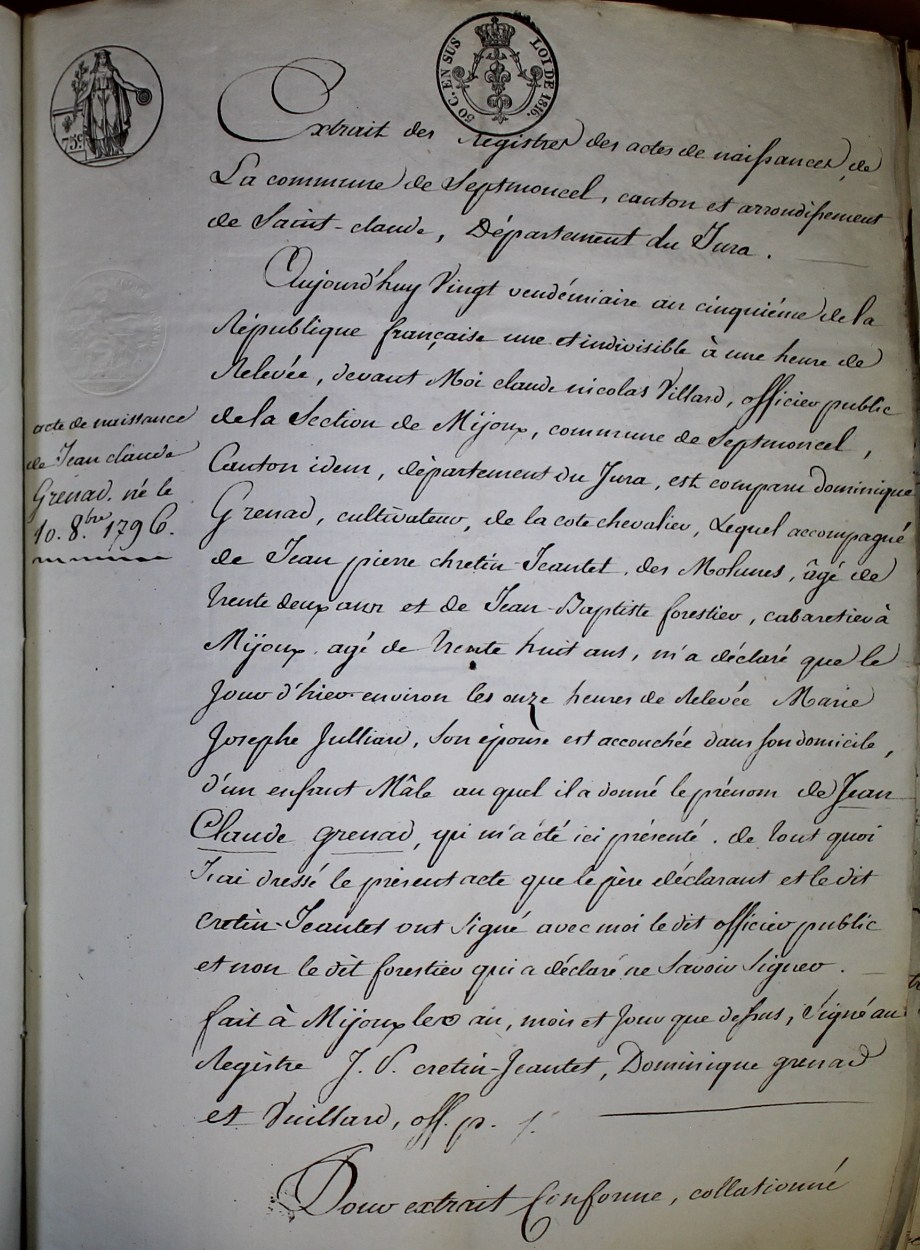 75c
50 C. EN SUS
LOI DE 1816.
Extrait des Registres des actes de naissances, de
La commune de Septmoncel, canton et arrondissement
de Saint-claude, Département du Jura.
Aujourd'huy Vingt vendémiaire an cinquième de la
République française une et indivisible à une heure de
Relevée, devant Moi claude nicolas Villard, officier public
de la Section de Mijoux, commune de Septmoncel,
Canton idem, département du Jura, est comparu dominique
Grenad, cultivateur, de la cote chevalier, Lequel accompagné
de Jean pierre chretin-Jeantet, des Molunes, âgé de
trente deux ans et de Jean-Baptiste forestier, cabaretier à
Mijoux, agé de trente huit ans, m'a déclaré que le
Jour d'hier environ les onze heures de Relevée Marie
Josephe Julliard, son épouse est accouchée dans son domicile,
d'un enfant Mâle au quel il a donné le prénom de Jean
Claude grenad, qui m'a été ici présenté. de tout quoi
J'ai dressé le présent acte que le père déclarant et le dit
cretin-Jeantet ont signé avec moi le dit officier public
et non le dit forestier qui a déclaré ne Savoir Signer.
fait à Mijoux les an, mois et Jour que dessus, Signé au
Registre J. P. cretin-Jeantet, Dominique grenad
et Vuillard, off. p.
Pour extrait Conforme, collationné
acte de naissance
de Jean claude
Grenad. né le
10. 8.bre 1796.